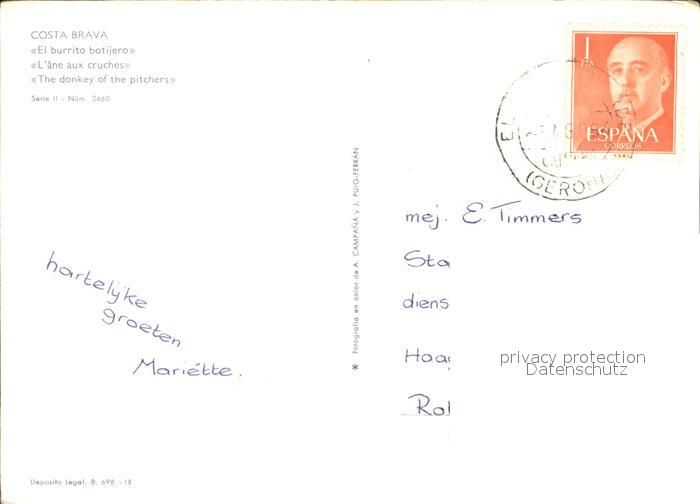 COSTA BRAVA
«El burrito botijero»
«L'âne aux cruches»
«The donkey of the pitchers»
Serie II - Núm. 2660
1
PTA
ESPAÑA
CORREOS
EL
(GERONA
* Fotografía en color de A. CAMPAÑÁ y J. PUIG-FERRÁN
mej. E. Timmers
Sta
diens
Haag
Ro
privacy protection
Datenschutz
hartelijke
groeten
Mariétte.
Deposito Legal. B. 698. - IX